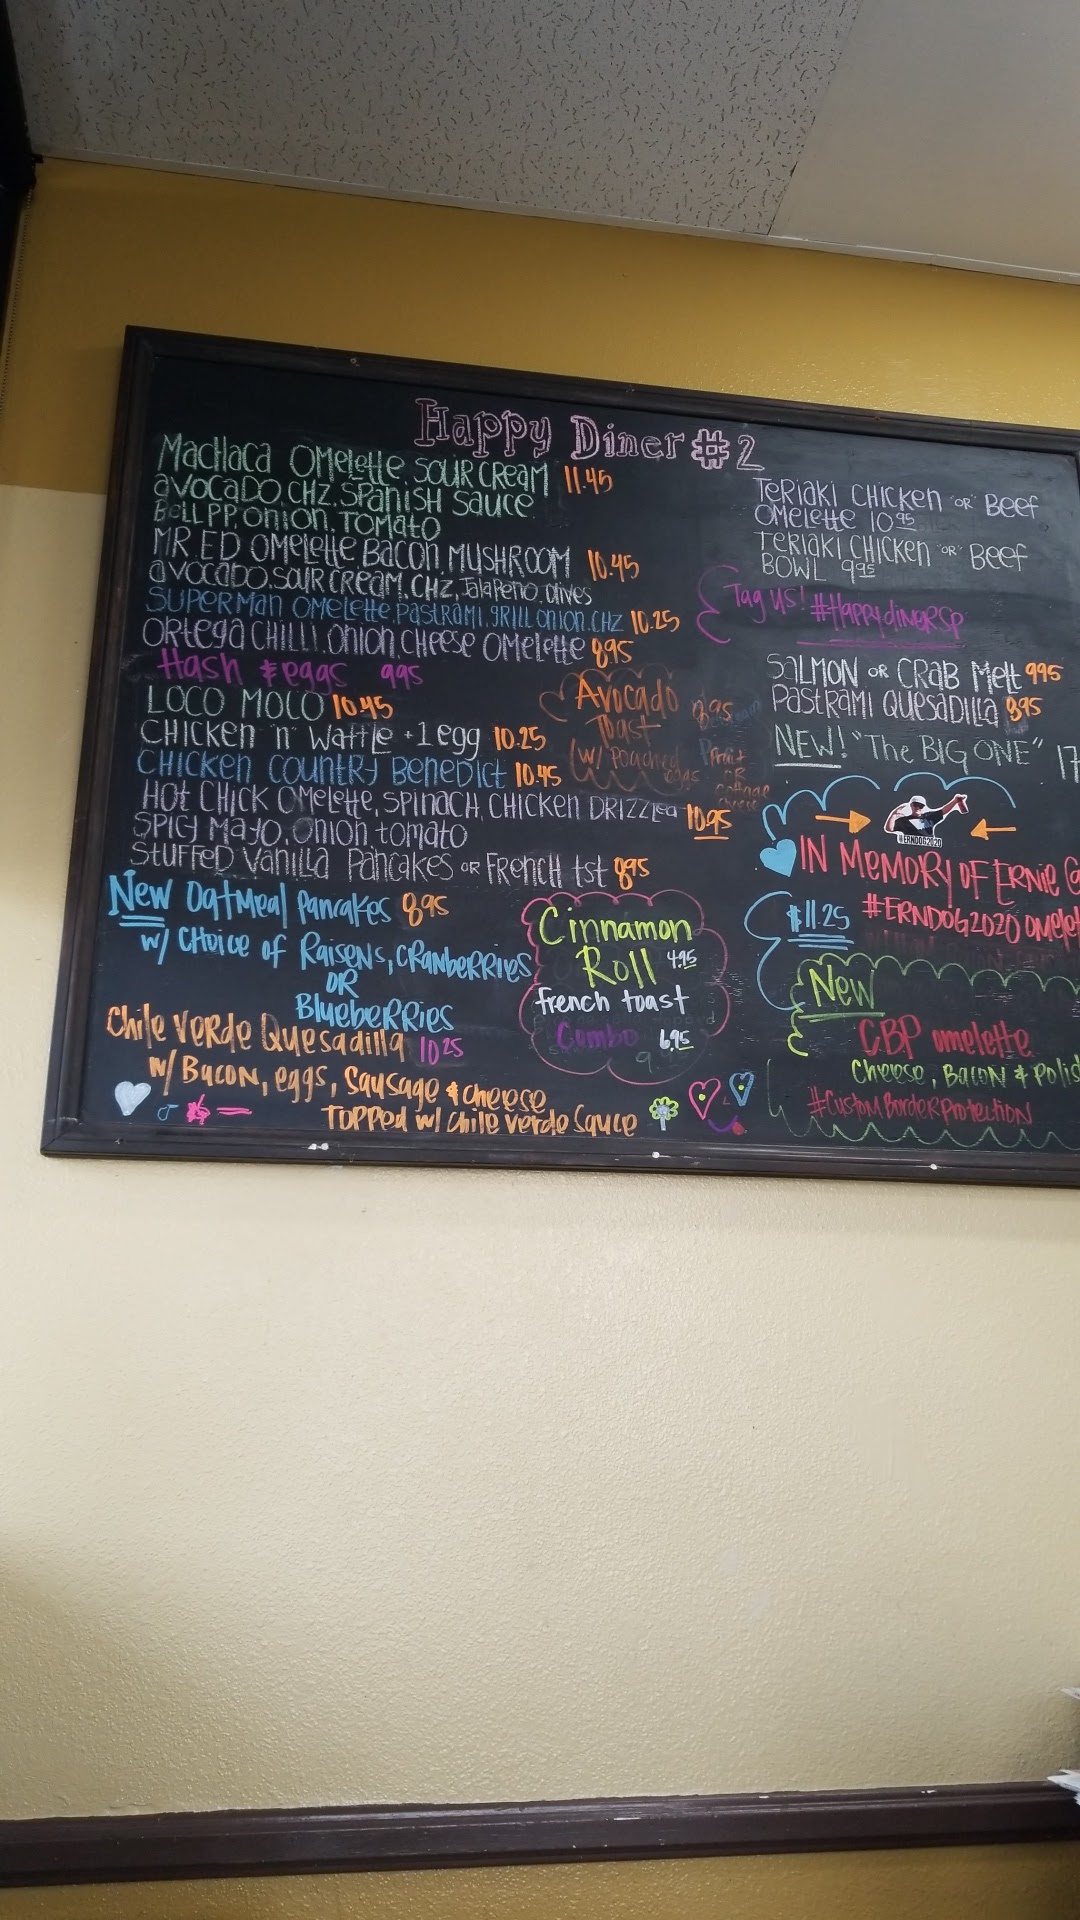 Happy Diner #2
Machaca Omelette, Sour Cream 11.45
Avocado, CHZ, Spanish Sauce
Bell PP, Onion, Tomato
MR. ED Omelette Bacon, Mushroom 10.45
Avocado, Sour Cream, CHZ, Jalapeno, Olives
Superman Omelette, Pastrami, Grill Onion, CHZ 10.25
Ortega Chilli, Onion, Cheese Omelette 8.95
Hash & eggs 9.95
Loco Moco 10.45
Chicken "n" Waffle + 1 egg 10.25
Chicken Country Benedict 10.45
Hot Chick Omelette, Spinach, Chicken Drizzled 10.95
Spicy Mayo, Onion, Tomato
Stuffed Vanilla Pancakes or French tst 8.95
New Oatmeal Pancakes 8.95
w/ Choice of Raisens, Cranberries
OR
Blueberries
Chile Verde Quesadilla 10.25
w/ Bacon, eggs, Sausage & Cheese
Topped w/ Chile Verde Sauce
Avocado 8.95
Toast
w/ Poached eggs
Fruit
OR
Cottage
Cheese
Cinnamon
Roll 4.95
french toast
Combo 6.95
Teriaki Chicken "or" Beef
Omelette 10.95
Teriaki Chicken "or" Beef
Bowl 9.95
Tag us! #Happydinersp
Salmon or Crab Melt 9.95
Pastrami Quesadilla 8.95
NEW! "The BIG ONE" 17
#ERNDOG2020
IN Memory of Ernie
$11.25 #ERNDOG2020 Omelet
New
CBP omelette
Cheese, Bacon & Polis
#CustomBorderProtection